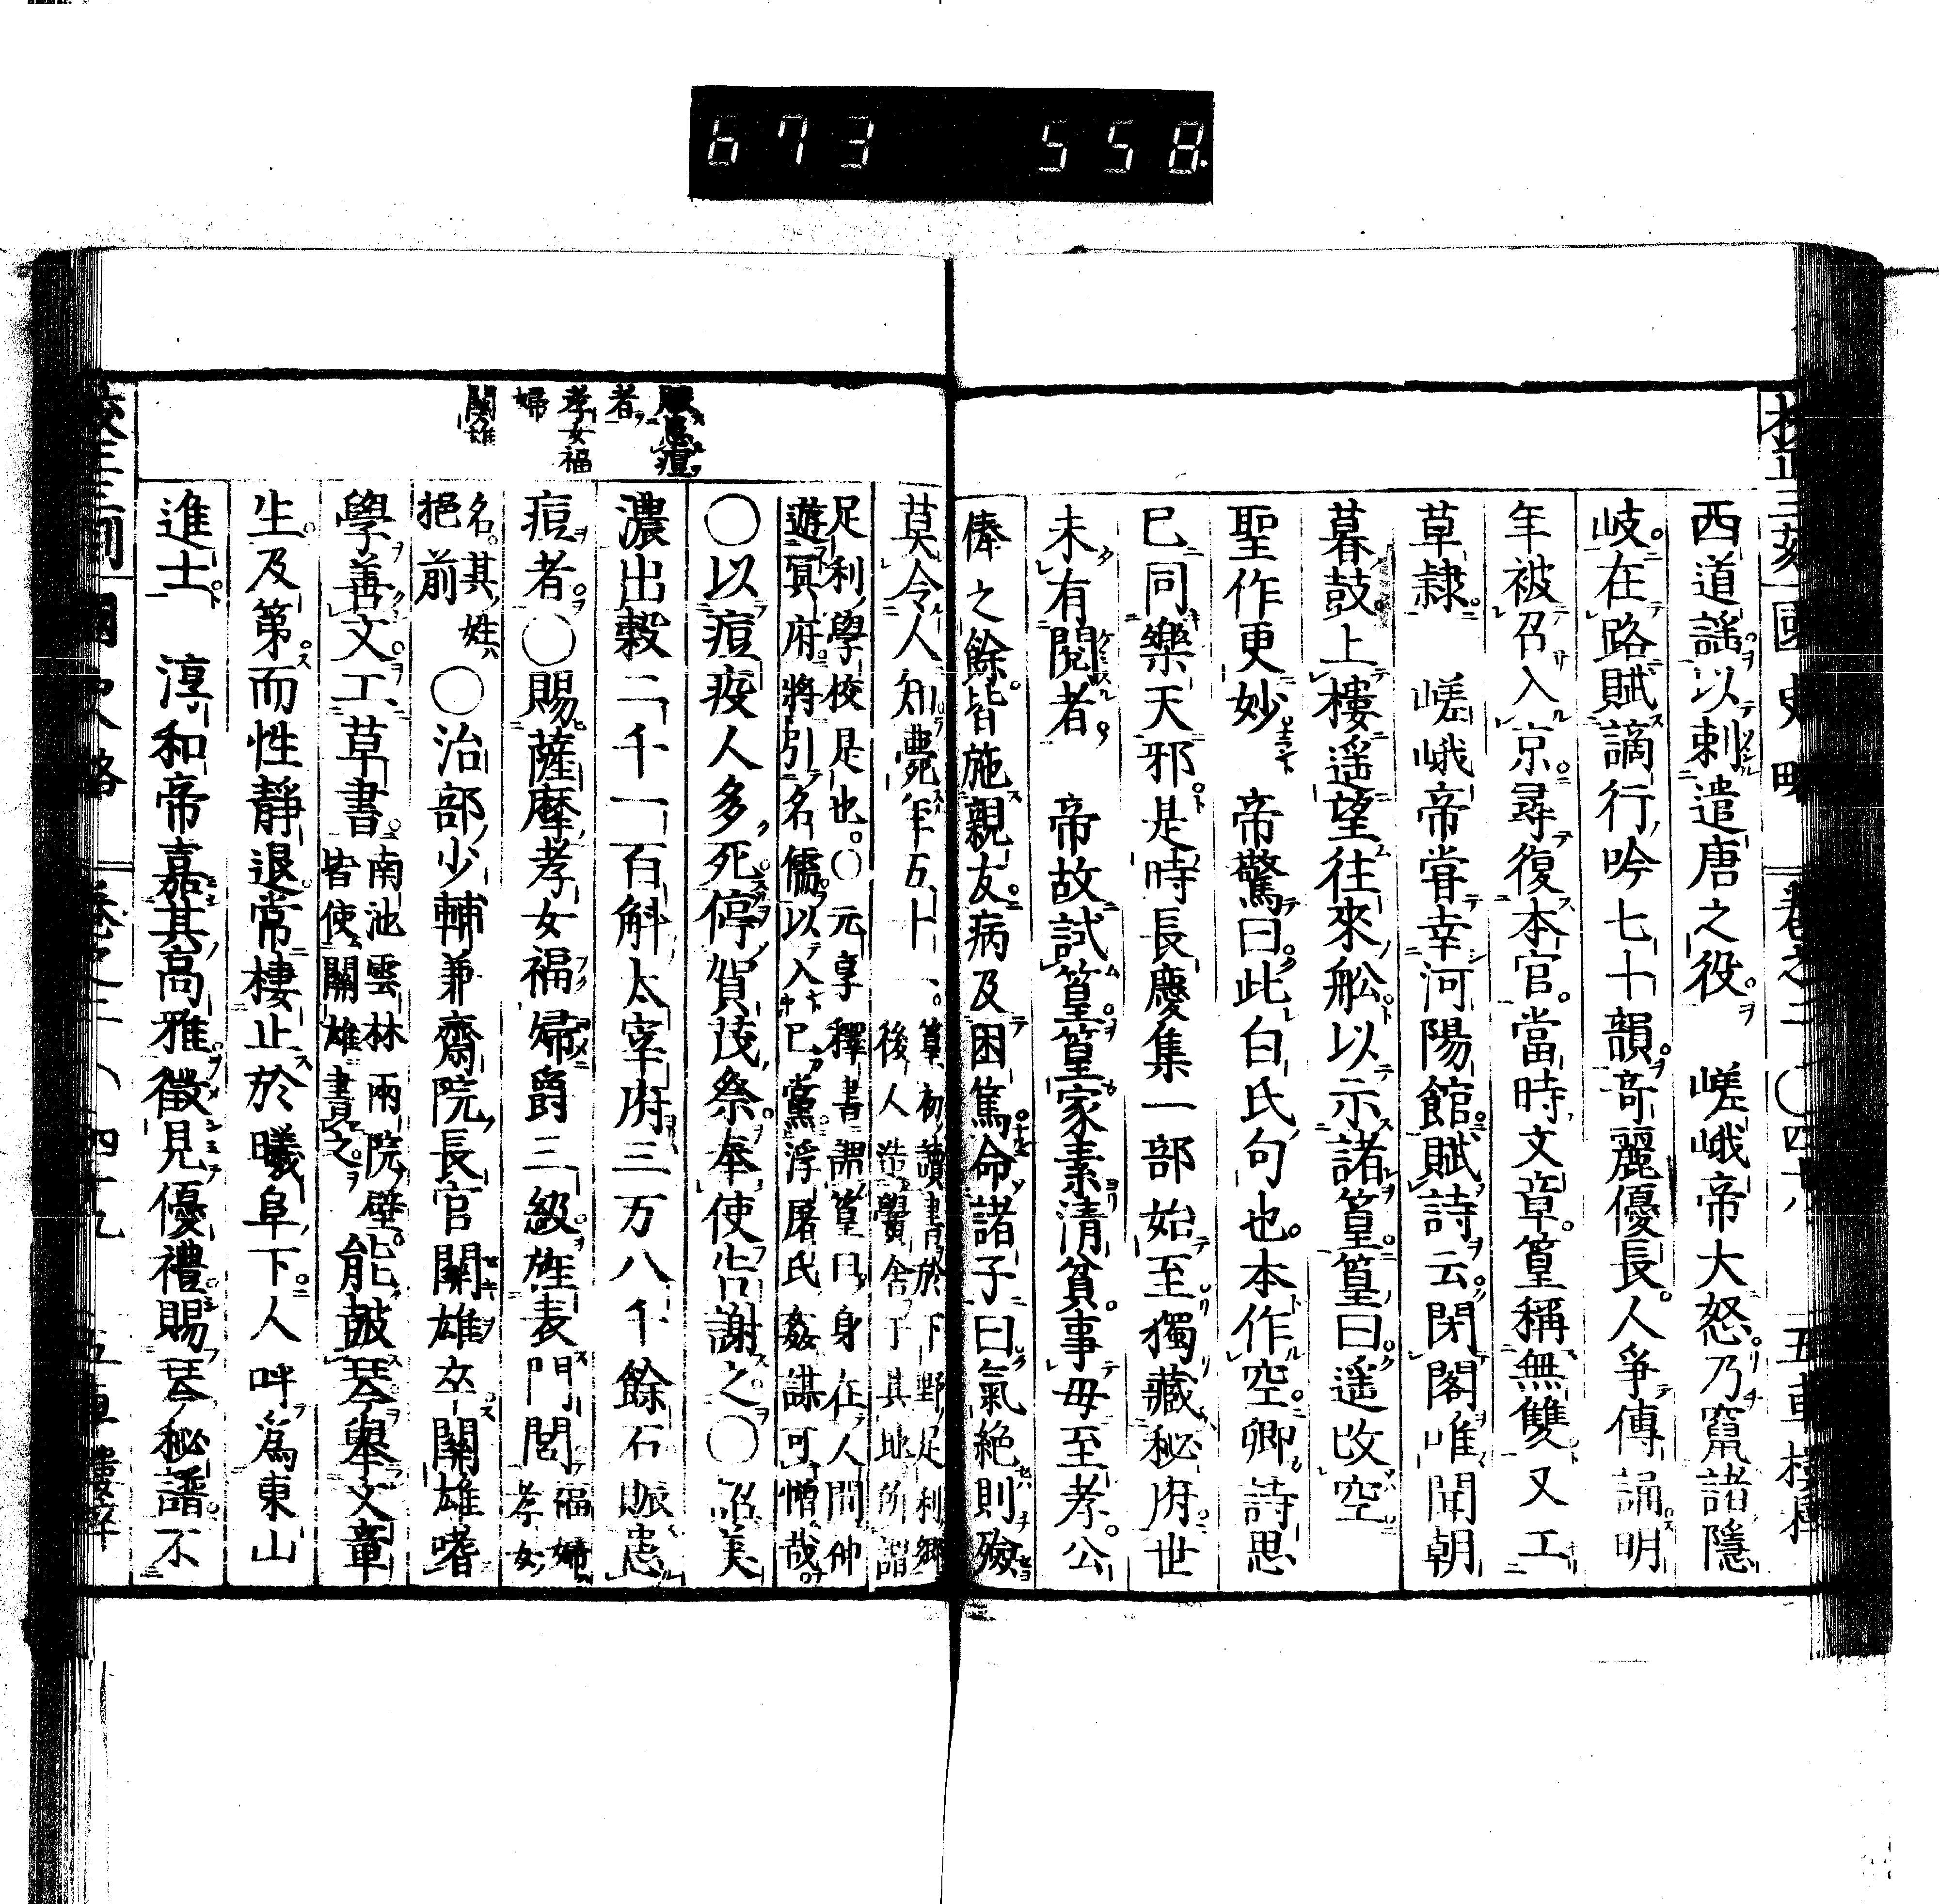 673 558.
國史略
西道謡以刺遣唐之役 嵯峨帝大怒乃竄諸隱
岐在路賦謫行吟七十韻奇麗優長人爭傳誦明
年被召入京尋復本官當時文章篁稱無雙又工
草隷 嵯峨帝甞幸河陽館賦詩云閉閣唯聞朝
暮鼓上樓遥望往來舩以示諸篁篁曰遥改空
聖作更妙 帝驚曰此白氏句也本作空卿詩思
已同樂天邪是時長慶集一部始至獨藏秘府世
未有閲者 帝故試篁篁家素清貧事母至孝公
俸之餘皆施親友病及困篤命諸子曰氣絶則殮
莫令人知薨年五十一
篁初讀書於下野足利郷
後人造黌舍于其地所謂
足利學校是也○元享釋書謂篁曰身在人間仲
遊冥府將引名儒以入已黨浮屠氏姦謀可憎哉
○以痘疫人多死停賀茂祭奉使告謝之○詔美
濃出穀二千一百斛太宰府三万八千餘石賑患
痘者○賜薩摩孝女福婦爵三級旌表門閭
福婦
孝女
名其姓
挹前
○治部少輔兼齋院長官關雄卒關雄嗜
學善文工草書
南池雲林兩院壁
皆使關雄書之
能皷琴舉文章
生及第而性靜退常棲止於曦阜下人呼爲東山
進士 淳和帝嘉其高雅徵見優禮賜琴秘譜不
者
孝女福
婦
關雄